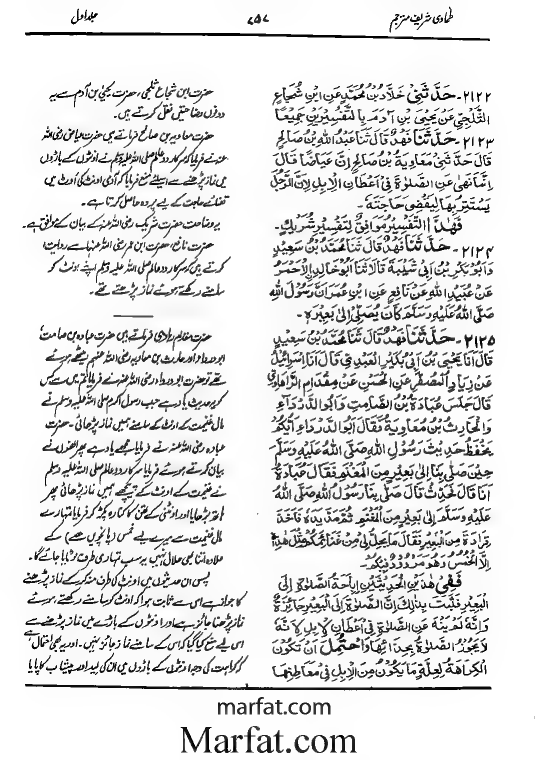 طحاوی شریف مترجم
۲۵۷
جلد اول
۲۱۲۲- حَدَّثَنِي خَلَّادُ بْنُ مُحَمَّدٍ عَنِ ابْنِ شُجَاعٍ
الثَّلْجِيِّ عَنْ يَحْيَى بْنِ آدَمَ بِالتَّفْسِيرَيْنِ جَمِيعًا
۲۱۲۳- حَدَّثَنَا فَهْدٌ قَالَ ثَنَا عَبْدُ اللهِ بْنُ صَالِحٍ
قَالَ حَدَّثَنِي مُعَاوِيَةُ بْنُ صَالِحٍ اَنَّ عِيَاضًا قَالَ
اِنَّمَا نَهَى عَنِ الصَّلٰوةِ فِي أَعْطَانِ الْإِبِلِ لِاَنَّ الرَّجُلَ
يَسْتَتِرُ بِهَا لِيَقْضِيَ حَاجَتَهٗ۔
فَهٰذَا التَّفْسِيْرُ مُوَافِقٌ لِتَفْسِيْرِ شَرِيْكٍ۔
۲۱۲۴- حَدَّثَنَا فَهْدٌ قَالَ ثَنَا مُحَمَّدُ بْنُ سَعِيدٍ
وَاَبُوْ بَكْرِ بْنُ اَبِيْ شَيْبَةَ قَالَا ثَنَا اَبُوْ خَالِدِ الْاَحْمَرُ
عَنْ عُبَيْدِ اللهِ عَنْ نَافِعٍ عَنِ ابْنِ عُمَرَ اَنَّ رَسُوْلَ اللهِ
صَلَّى اللهُ عَلَيْهِ وَسَلَّمَ كَانَ يُصَلِّيْ اِلٰى بَعِيْرِهٖ۔
۲۱۲۵- حَدَّثَنَا فَهْدٌ قَالَ ثَنَا مُحَمَّدُ بْنُ سَعِيدٍ
قَالَ اَنَا يَحْيَى بْنُ اَبِيْ بُكَيْرِ الْعَبْدِيُّ قَالَ اَنَا اِسْرَائِيْلُ
عَنْ زِيَادٍ الْمُصَفِّرِ عَنِ الْحَسَنِ عَنْ مِقْدَامٍ الرَّهَاوِيِّ
قَالَ جَلَسَ عُبَادَةُ بْنُ الصَّامِتِ وَاَبُو الدَّرْدَاءِ
وَالْحَارِثُ بْنُ مُعَاوِيَةَ فَقَالَ اَبُو الدَّرْدَاءِ اَيُّكُمْ
يَحْفَظُ حَدِيْثَ رَسُوْلِ اللهِ صَلَّى اللهُ عَلَيْهِ وَسَلَّمَ
حِيْنَ صَلّٰى بِنَا اِلٰى بَعِيْرٍ مِنَ الْمَغْنَمِ فَقَالَ عُبَادَةُ
اَنَا قَالَ فَحَدِّثْ قَالَ صَلّٰى بِنَا رَسُوْلُ اللهِ صَلَّى اللهُ
عَلَيْهِ وَسَلَّمَ اِلٰى بَعِيْرٍ مِنَ الْمَغْنَمِ ثُمَّ مَدَّ يَدَهٗ فَاَخَذَ
قُرَادَةً مِنَ الْبَعِيْرِ فَقَالَ مَا يَحِلُّ لِيْ مِنْ غَنَائِمِكُمْ مِثْلُ هٰذِهٖ
اِلَّا الْخُمُسُ وَهُوَ مَرْدُوْدٌ فِيْكُمْ۔
فَفِيْ هٰذَيْنِ الْحَدِيْثَيْنِ اِبَاحَةُ الصَّلٰوةِ اِلَى
الْبَعِيْرِ فَثَبَتَ بِذٰلِكَ اَنَّ الصَّلٰوةَ اِلَى الْبَعِيْرِ جَائِزَةٌ
وَاَنَّهٗ لَمْ يَنْهَ عَنِ الصَّلٰوةِ فِيْ اَعْطَانِ الْاِبِلِ لِاَنَّهٗ
لَا يَجُوْزُ الصَّلٰوةُ بِحِذَائِهَا وَاحْتُمِلَ اَنْ تَكُوْنَ
الْكَرَاهَةُ لِعِلَّةِ مَا يَكُوْنُ مِنَ الْاِبِلِ فِيْ مَعَاطِنِهَا
حضرت ابن شجاع ثلجی، حضرت یحییٰ بن آدم سے یہ
دونوں وضاحتیں نقل کرتے ہیں۔
حضرت معاویہ بن صالح فرماتے ہیں حضرت عیاض رضی اللہ
عنہ نے فرمایا کہ سرکار دو عالم صلی اللہ علیہ وسلم نے اونٹوں کے باڑوں
میں نماز پڑھنے سے اسلئے منع فرمایا کہ آدمی اونٹ کی اوٹ میں
قضائے حاجت کے لیے پردہ حاصل کرتا ہے۔
یہ وضاحت حضرت شریک رضی اللہ عنہ کے بیان کے موافق ہے۔
حضرت نافع، حضرت ابن عمر رضی اللہ عنہما سے روایت
کرتے ہیں کہ سرکار دو عالم صلی اللہ علیہ وسلم اپنے اونٹ کو
سامنے رکھتے ہوئے نماز پڑھتے تھے۔
حضرت مقدام رہاوی فرماتے ہیں حضرت عبادہ بن صامت،
ابو درداء اور حارث بن معاویہ رضی اللہ عنہم بیٹھے ہوئے
تھے تو حضرت ابو درداء رضی اللہ عنہ نے فرمایا تم میں سے کس
کو یہ حدیث یاد ہے جب رسول اکرم صلی اللہ علیہ وسلم نے
مال غنیمت کے اونٹ کے سامنے ہمیں نماز پڑھائی۔ حضرت
عبادہ رضی اللہ عنہ نے فرمایا مجھے یاد ہے پھر انھوں نے
بیان کرتے ہوئے فرمایا سرکار دو عالم صلی اللہ علیہ وسلم
نے غنیمت کے اونٹ کے پیچھے ہمیں نماز پڑھائی پھر
ہاتھ بڑھایا اور اونٹنی کے کنارہ پکڑ کر فرمایا تمہارے
مال غنیمت سے میرے لیے خمس (پانچویں حصے) کے
علاوہ اتنا بھی حلال نہیں یہ سب تمہاری طرف لوٹایا جائے گا۔
پس ان حدیثوں میں اونٹ کی طرف منہ کر کے نماز پڑھنے
کا جواز ہے اس سے ثابت ہوا کہ اونٹ کو سامنے رکھتے ہوئے
نماز پڑھنا جائز ہے اور اونٹوں کے باڑے میں نماز پڑھنے سے
اس لیے منع کیا گیا کہ اس کے سامنے نماز جائز نہیں۔ اور یہ بھی احتمال ہے
کہ کراہت کی وجہ اونٹوں کے باڑوں میں ان کی لید اور پیشاب کا پایا
marfat.com
Marfat.com